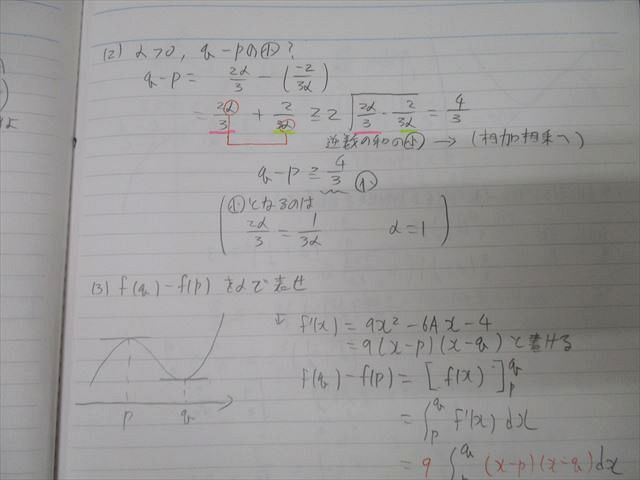 (2) α>0, q-pの小?
q-p = 2α/3 - (-2/3α)
= 2α/3 + 2/3α ≧ 2√(2α/3 · 2/3α) = 4/3
逆数の和の小 → (相加相乗へ)
q-p ≧ 4/3 小
小となるのは
2α/3 = 1/3α α=1
(3) f(q)-f(p) をαで表せ
↓ f'(x) = 9x²-6Ax-4
= 9(x-p)(x-q) と書ける
f(q)-f(p) = [f(x)]^q_p
= ∫^q_p f'(x)dx
= 9∫^q_p (x-p)(x-q)dx
p q